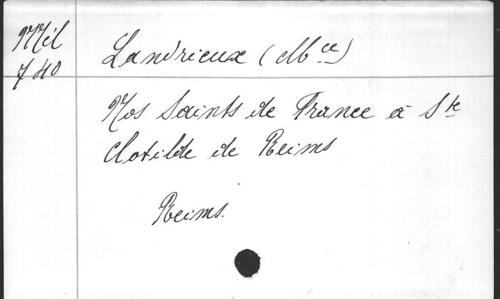 Mél
740
Landrieux (Mce)
Nos Saints de France à Ste
Clotilde de Reims
Reims.